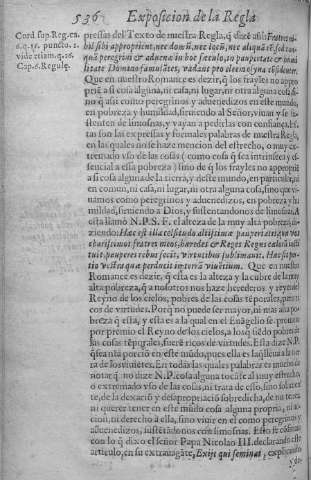 536 Exposicion de la Regla
Cord. sup. Reg. ca.
6. q. 16. puncto. 2.
vide etiam. q. 16.
Cap. 6. Regulę.
pressas del Texto de nuestra Regla, q̃ dize assi: Fratres ni-
bil sibi approprient, nec domũ, nec locũ, nec aliquã rẽ, sed tan-
quã peregrini & aduenæ in hoc sæculo, in paupertate & humi
litate Domino famulãtes, vadant pro eleemosyna cõfidenter.
Que en nuestro Romance es dezir, q̃ los frayles no appro
prien a si cosa alguna, ni casa, ni lugar, ni otra alguna cosa, si
no q̃ assi como peregrinos y aduenedizos en este mundo,
en pobreza y humildad, siruiendo al Señor, viuan y se sus
tenten de limosnas, y vayan a pedirlas con confiança. Es-
tas son las expressas y formales palabras de nuestra Regla,
en las quales no se haze mencion del estrecho, o muy ex-
tremado vso de las cosas (como cosa q̃ sea intrinseca y es-
sencial a essa pobreza) sino de q̃ los frayles no approprien
a si cosa alguna de la tierra, y deste mundo, en particular, ni
en comun, ni casa, ni lugar, ni otra alguna cosa, sino que vi-
uamos como peregrinos y aduenedizos, en pobreza y hu
mildad, siruiendo a Dios, y sustentandonos de limosnas. A
esta llamò N. P. S. F. alteza de la muy alta pobreza, di-
ziendo: Hæc est illa celsitudo altissimæ paupertatis, quæ vos
charissimos fratres meos, hæredes & Reges Regni cælorũ insti
tuit, pauperes rebus fecit, virtutibus sublimauit. Hæc sit por-
tio vestra quæ perducit in terrã viuẽtium. Que en nuestro
Romance es dezir, q̃ esta es la alteza y la cubre de la muy
alta pobreza, q̃ a nosotros nos haze herederos, y reyes del
Reyno de los cielos, pobres de las cosas tẽporales, pero ri
cos de virtudes. Porq̃ no puede ser mayor, ni mas alta po-
breza q̃ esta, y esta es a la qual en el Euãgelio se promete
por premio el Reyno de los cielos, a los q̃ siẽdo pobres de
las cosas tẽporales, fuerẽ ricos de virtudes. Esta dize N. P.
q̃ sea nřa porciõ en este mũdo, pues ella es la q̃ lleua a la tier
ra de los viuiẽtes. En todas las quales palabras es mucho de
notar, q̃ no dize N. P. cosa alguna tocãte al muy estrecho
o extremado vso de las cosas, ni trata de esso, sino solamẽ
te, de la dexaciõ y desapropriaciõ sobredicha, de no tener,
ni querer tener en este mũdo cosa alguna propria, ni ac-
cion, ni derecho à ella, sino viuir en el como peregrinos y
aduenedizos, sustẽtados con limosnas. Esto se cõfirma
con lo q̃ dixo el señor Papa Nicolao III. declarando este
articulo, en su extrauagãte, Exijt qui seminat, explicando